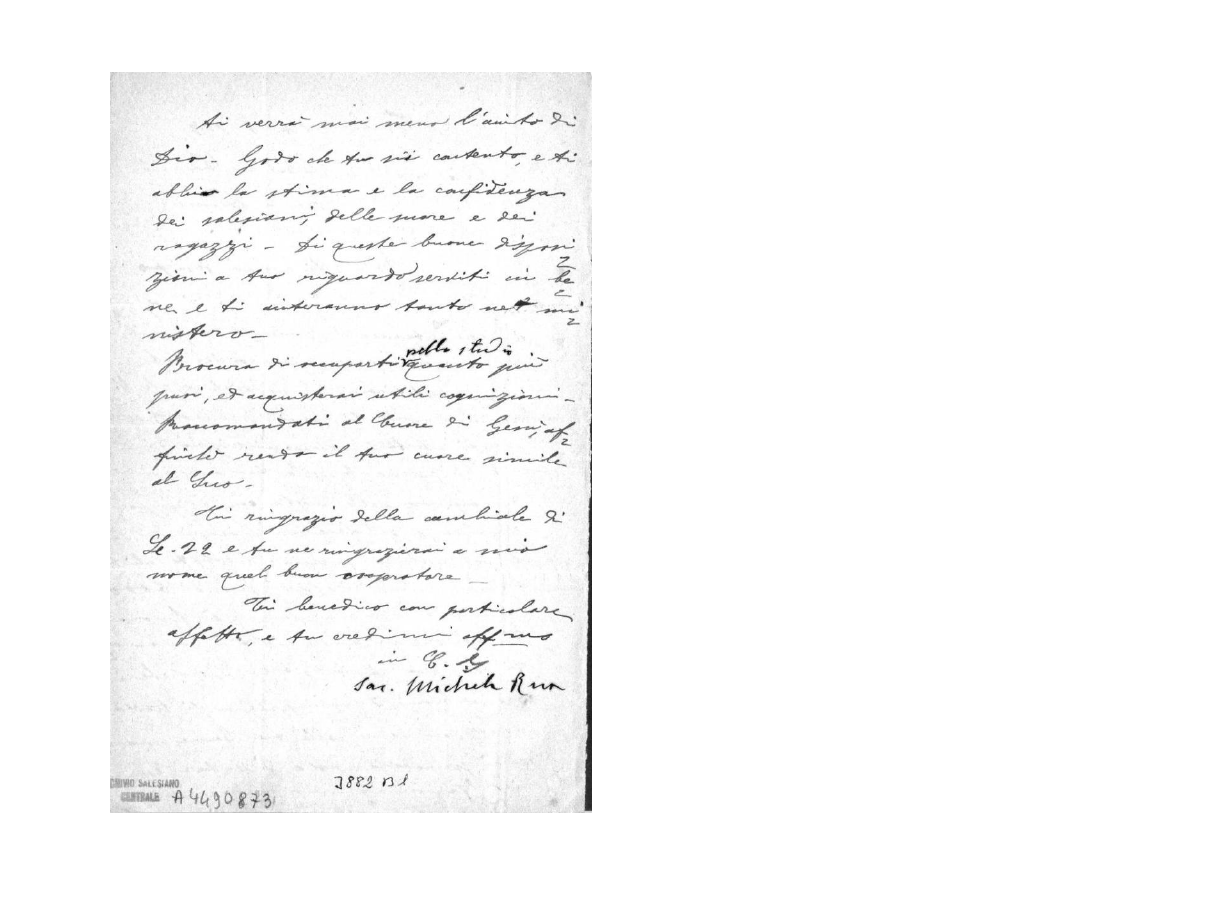 ti verrà mai meno l'aiuto di
Dio - Godo che tu sii contento, e ti
abbia la stima e la confidenza
dei salesiani, delle suore e dei
ragazzi - Di queste buone disposi
zioni a tuo riguardo serviti in be
ne, e ti aiuteranno tanto nel mi
nistero -
nello studio
Procura di occuparti quanto più
puoi, ed acquisterai utili cognizioni -
Raccomandati al Cuore di Gesù, af
finchè renda il tuo cuore simile
al Suo -
Ti ringrazio della cambiale di
Ls. 22 e tu ne ringrazierai a mio
nome quel buon coopratore -
Ti benedico con particolare
affetto, e tu credimi aff.mo
in C. J.
Sac. Michele Rua
3882 B1
CHIVIO SALESIANO
CENTRALE A4490873